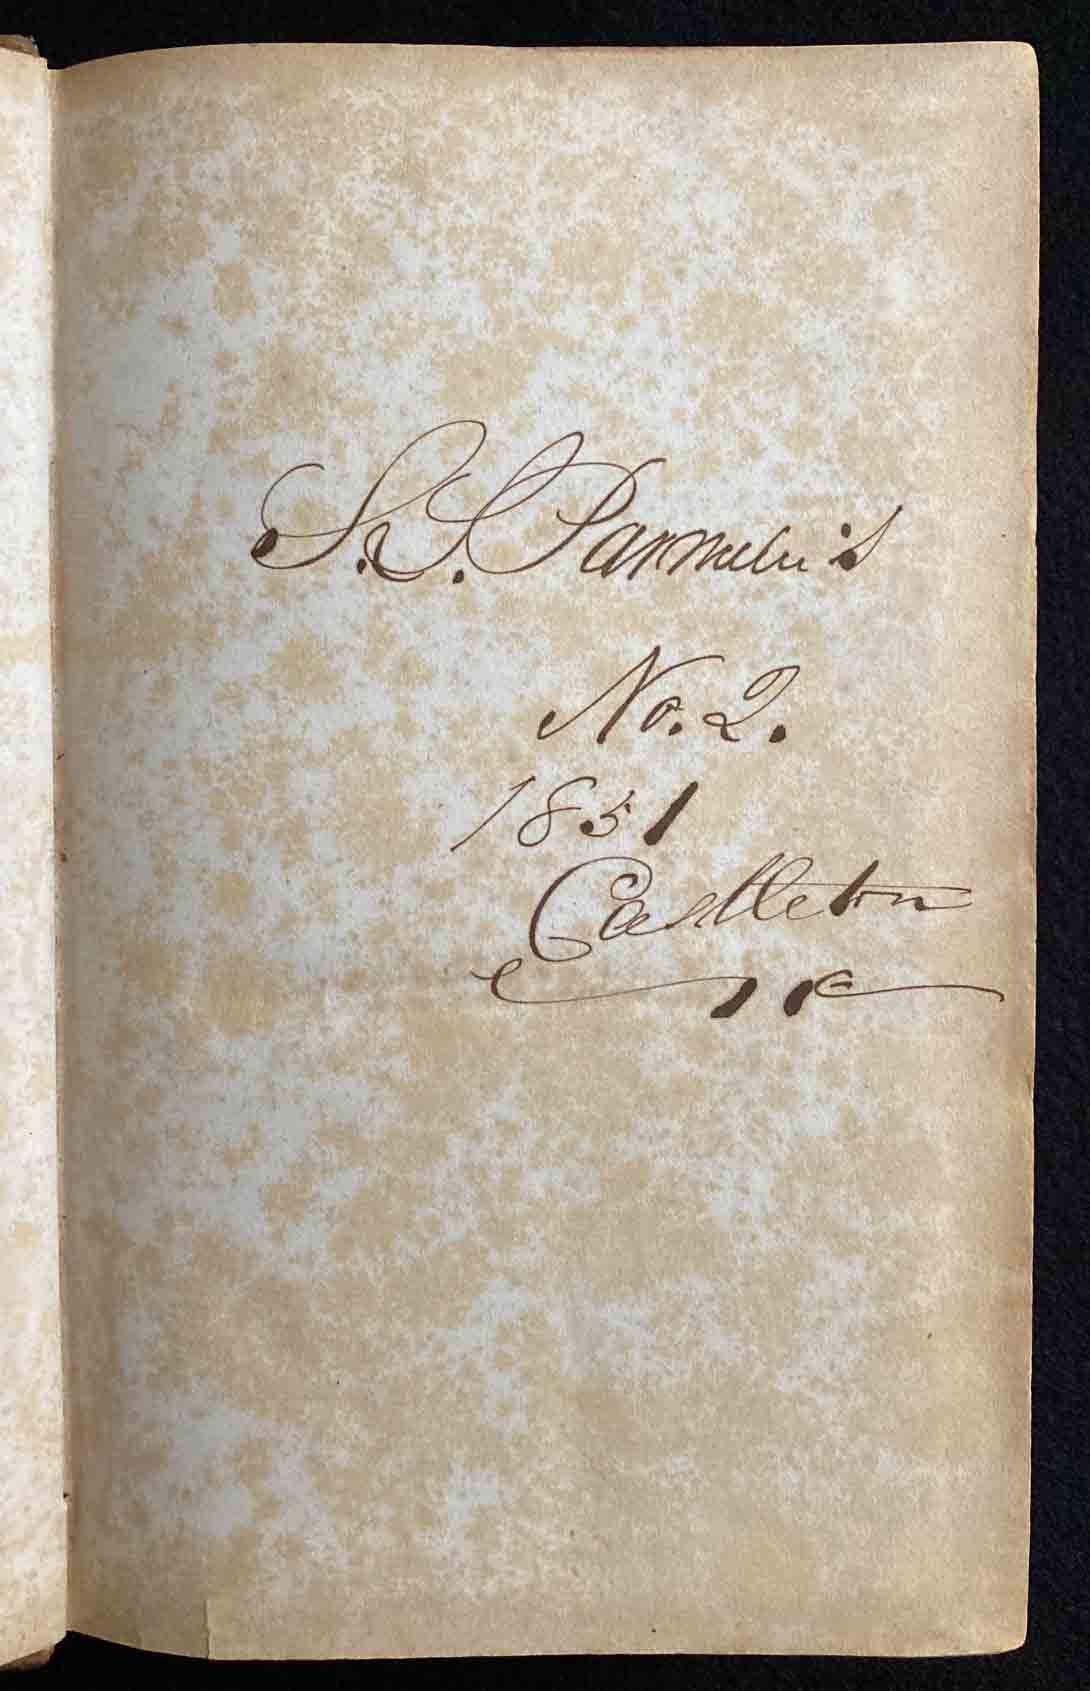 S. S. Parmelee's
No. 2.
1851
Castleton